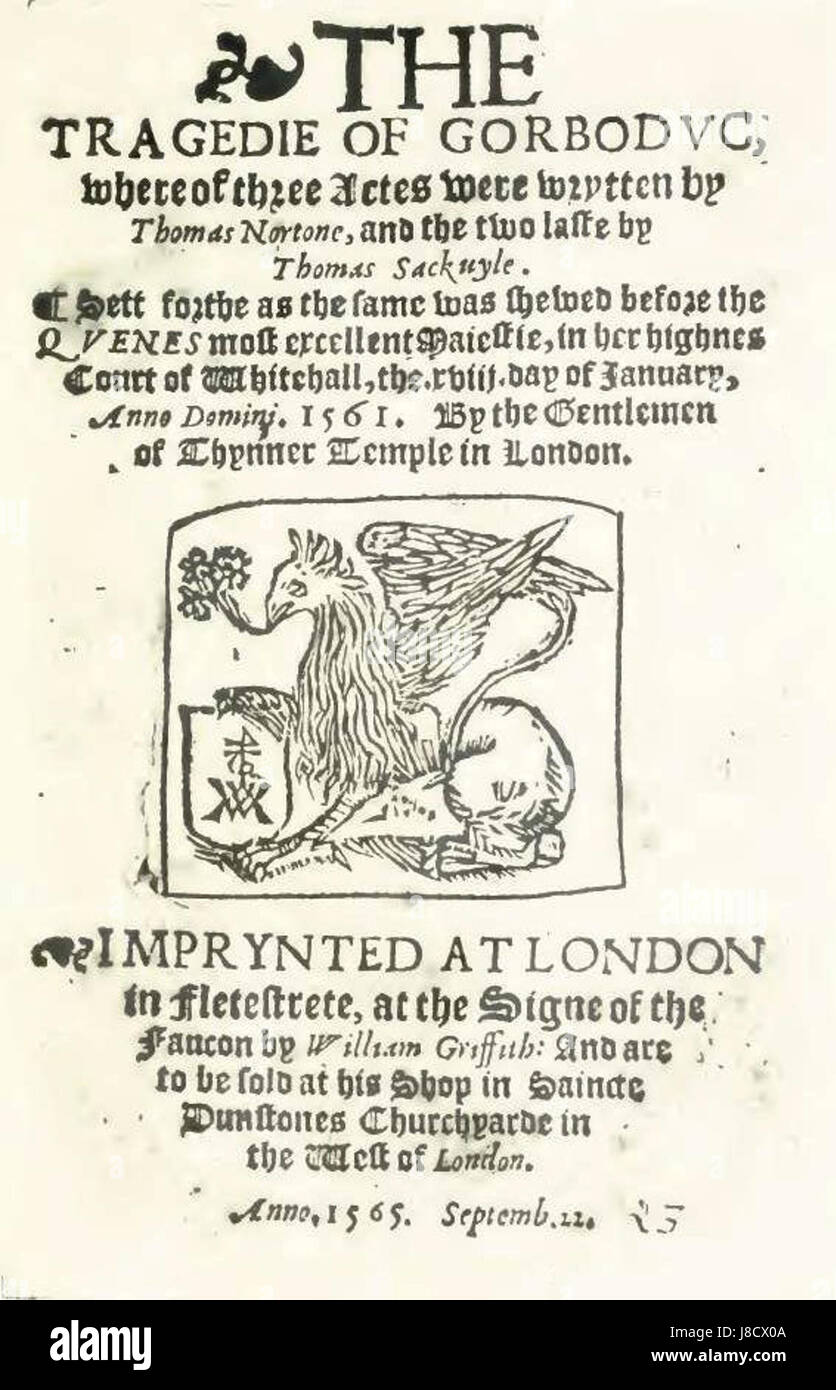 THE
TRAGEDIE OF GORBODVC,
whereof three Actes were wrytten by
Thomas Nortone, and the two laste by
Thomas Sackuyle.
¶ Sett forthe as the same was shewed before the
QVENES most excellent Maiestie, in her highnes
Court of Whitehall, the .xviij. day of January,
Anno Domini. 1561. By the Gentlemen
of Thynner Temple in London.
IMPRYNTED AT LONDON
in Fletestrete, at the Signe of the
Faucon by William Griffith: And are
to be sold at his Shop in Saincte
Dunstones Churchyarde in
the West of London.
Anno, 1565. Septemb. 22.
alamy
Image ID: J8CX0A
www.alamy.com